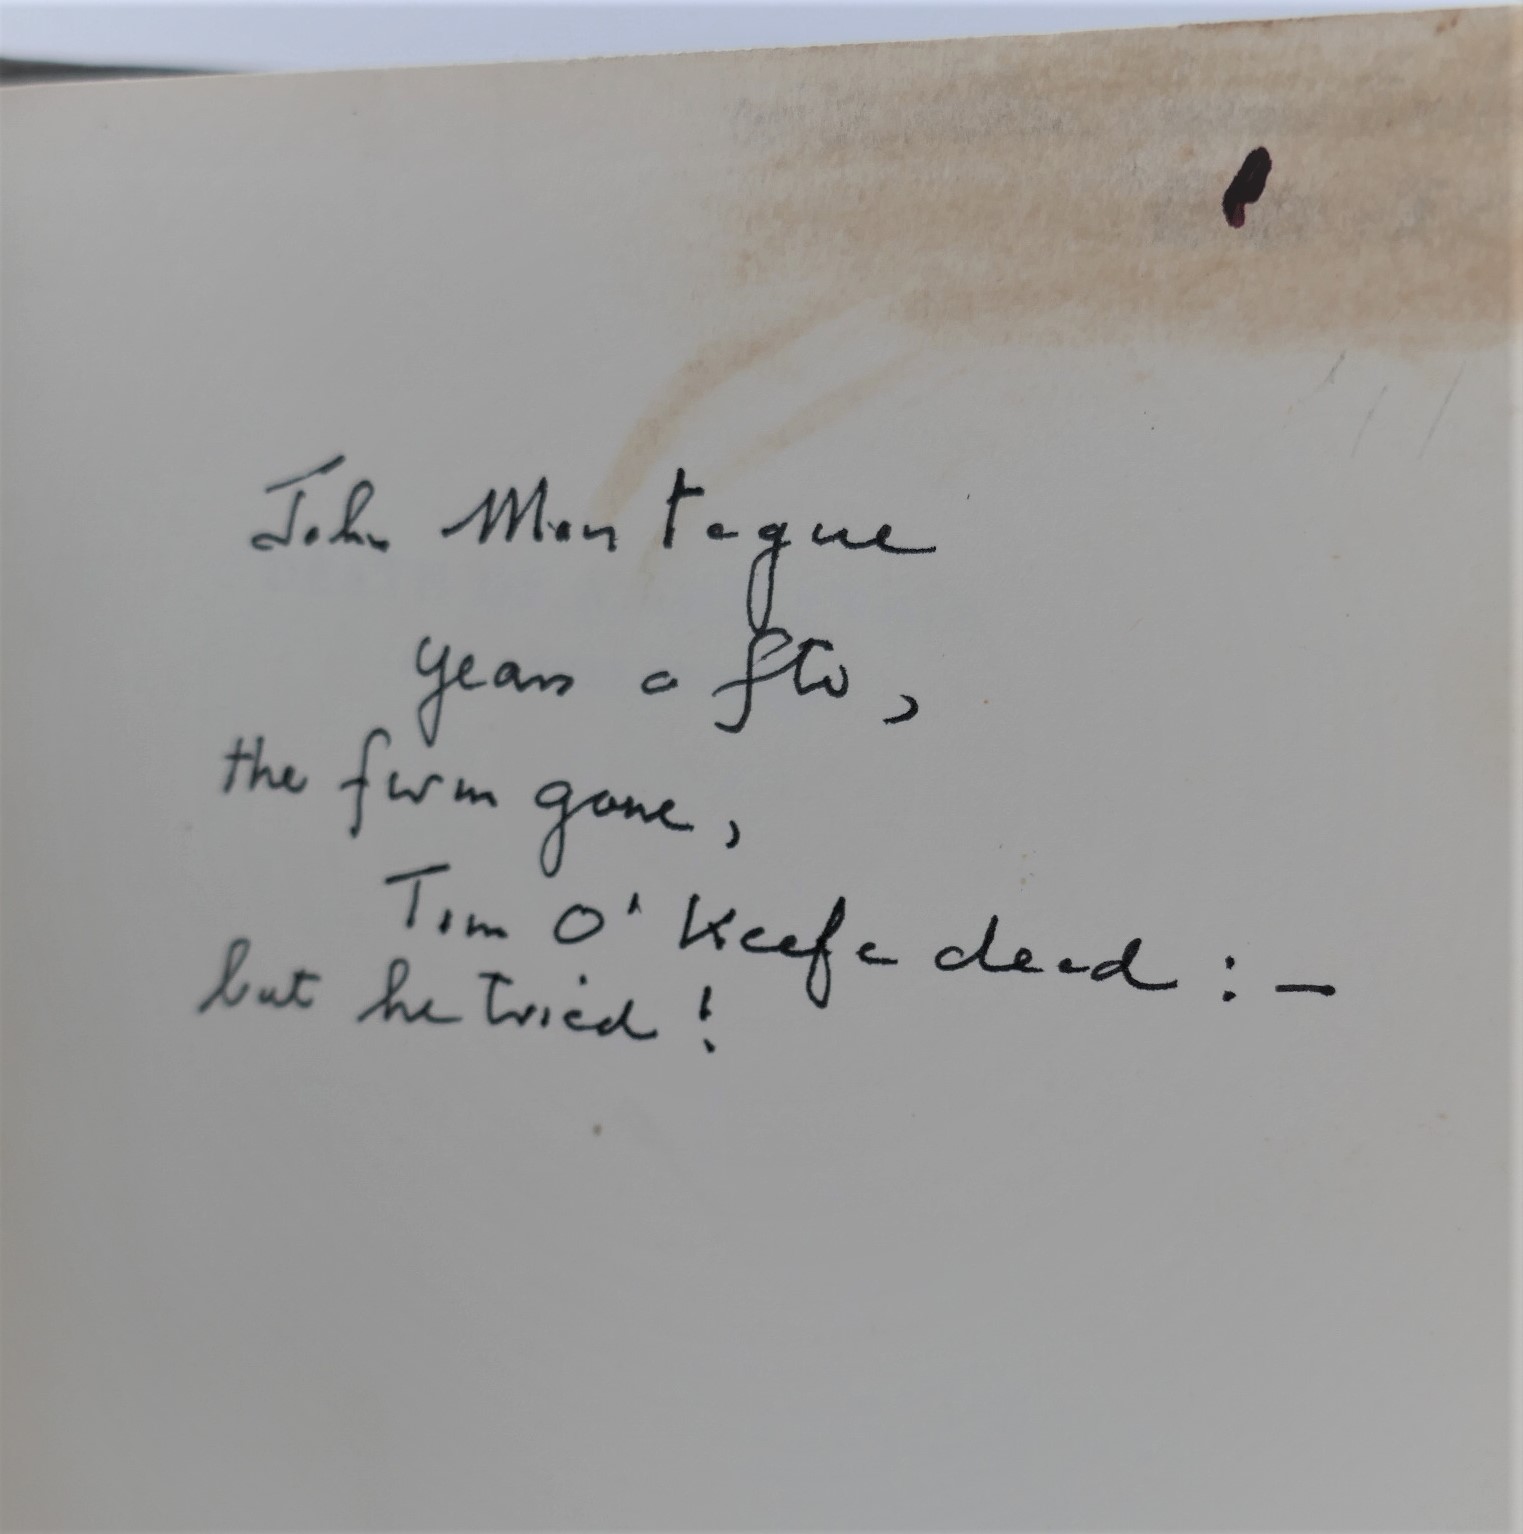 John Montague
years after,
the firm gone,
Tim O'Keefe dead:—
but he tried!